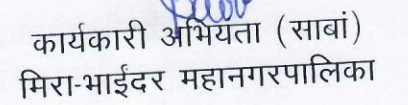 कार्यकारी अभियता (साबां)
मिरा-भाईंदर महानगरपालिका